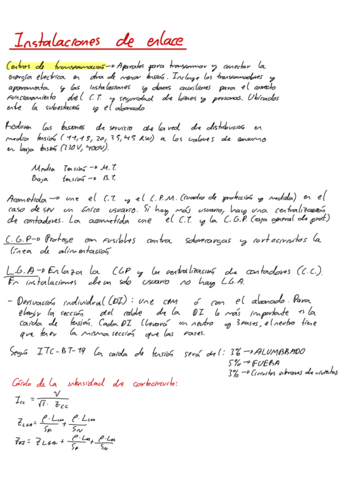 Instalaciones de enlace
Centros de transformación → Aparatos para transformar y conectar la
energía electrica en otra de menor tensión. Incluye los transformadores y
aparamenta y las instalaciones y obras auxiliares para el correcto
funcionamiento del C.T. y seguridad de bienes y personas. Ubicados
entre la subestación y el abonado
las tensiones de servicio de la red de distribución en
media tensión (11, 15, 20, 35, 45 KW) a los valores de consumo
en baja tensión (230V, 400V).
Media Tensión → M.T.
Baja tensión → B.T.
Acometida → une el C.T. y el C.P.M. (cuadro de protección y medida) en el
caso de ser un único usuario. Si hay más usuarios, hay una centralización
de contadores. La acometida une el C.T. y la C.G.P. (caja general de prot)
C.G.P → Protege con fusibles contra sobrecargas y cortocircuitos la
línea de alimentación
L.G.A → Enlaza la CGP y la centralización de contadores (C.C.).
En instalaciones de un solo usuario no hay L.G.A.
- Derivación individual (DI): une CPM ó cen el abonado. Para
elegir la sección del cable de la DI lo más importante es la
caida de tensión. Cada DI llevará un neutro y 3 fases, el neutro tiene
que tener la misma sección que las fases.
Según ITC-BT-19 la caida de tensión será del: 3% → ALUMBRADO
5% → FUERA
3% → Circuitos internos de viviendas
Cálculo de la intensidad de cortocircuito:
I_cc = V / √3 · Z_cc
Z_LGA = ρ · L_LGA / S_F + ρ · L_LGA / S_N
Z_DI = Z_LGA + ρ · L_DI / S_F + ρ · L_DI / S_N